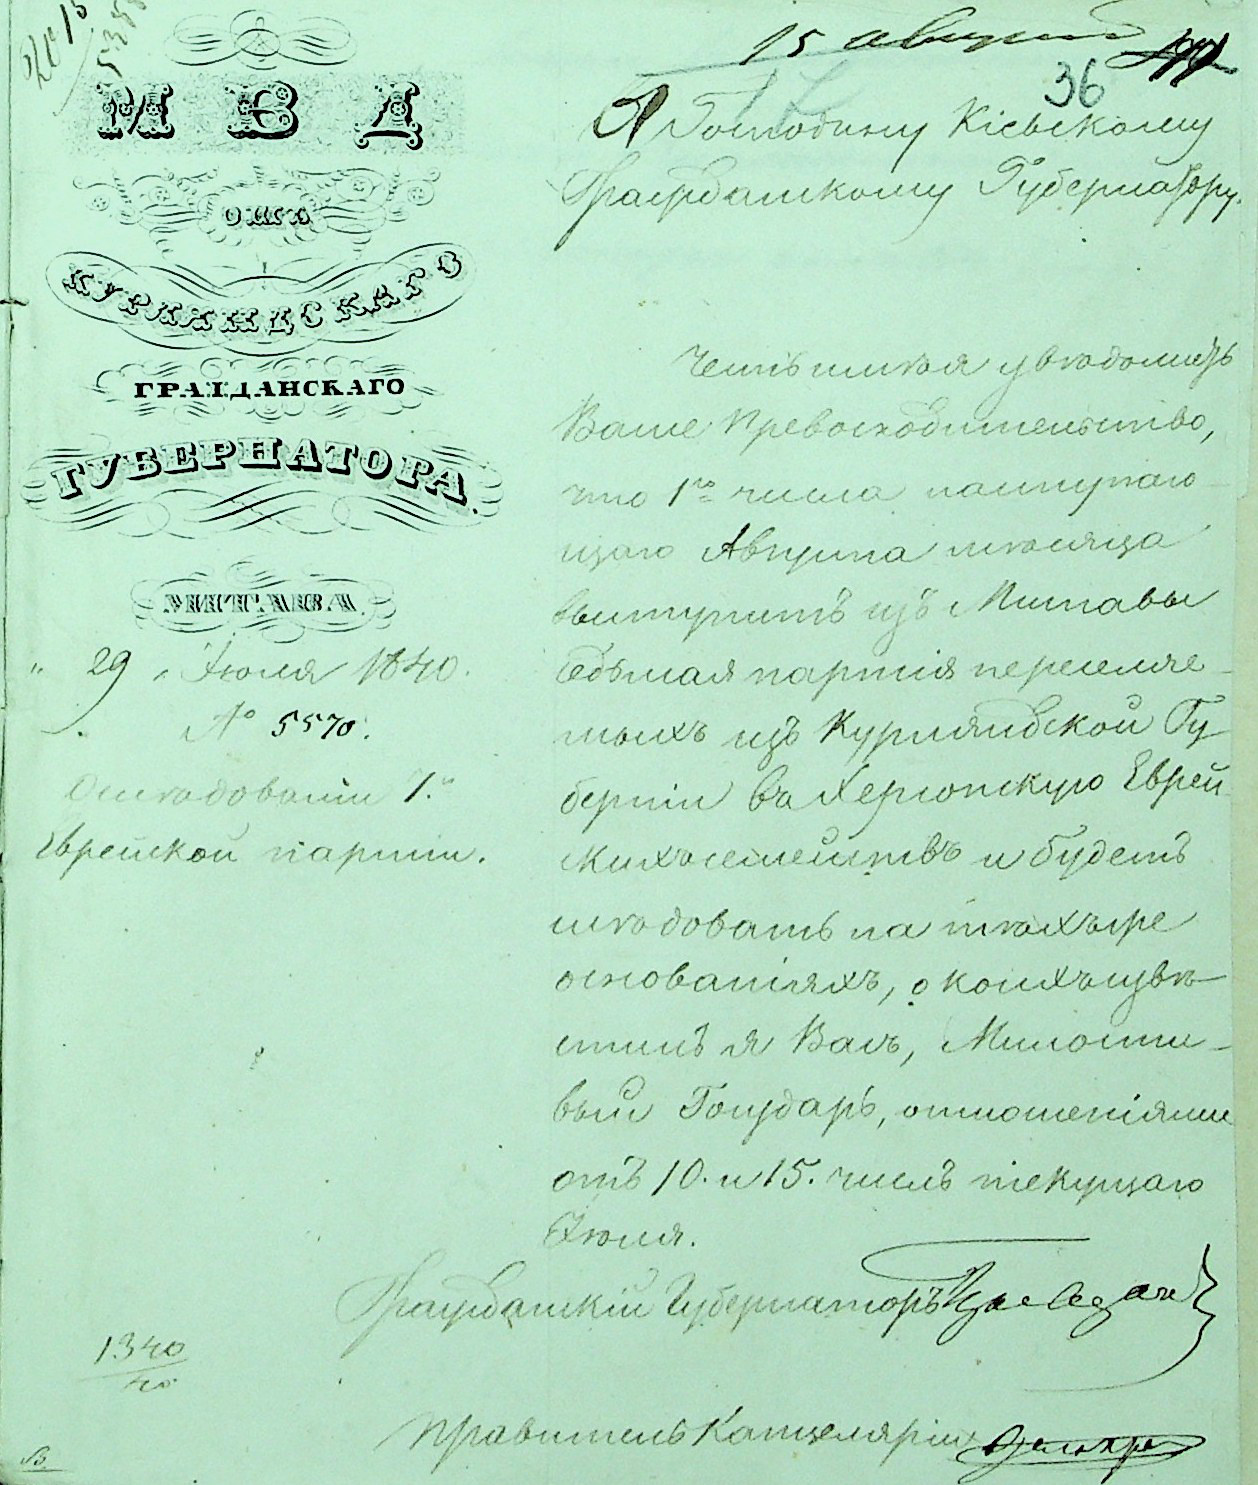 15 августа
36
МВД
ОТЪ
КУРЛЯНДСКАГО
ГРАЖДАНСКАГО
ГУБЕРНАТОРА.
МИТАВА.
„ 29 „ Іюля 1840.
№ 5570.
О слѣдованіи
Еврейской партіи.
Господину Кіевскому
Гражданскому Губернатору.
Честь имѣя увѣдомить
Ваше Превосходительство,
что 1го числа наступаю-
щаго Августа мѣсяца
выступитъ изъ Митавы
седьмая партія переселяе-
мыхъ изъ Курляндской Гу-
берніи въ Херсонскую Еврей
скихъ семействъ и будетъ
слѣдовать на тѣхъ же
основаніяхъ, о коихъ извѣ-
стилъ я Васъ, Милости-
вый Государь, отношеніями
отъ 10. и 15. числъ текущаго
Іюля.
Гражданскій Губернаторъ
1340
40
Правитель Канцеляріи